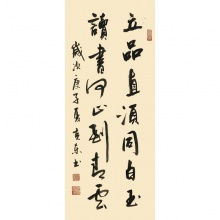 立品直須同白玉
讀書何止到青雲
歲次庚子夏真東书